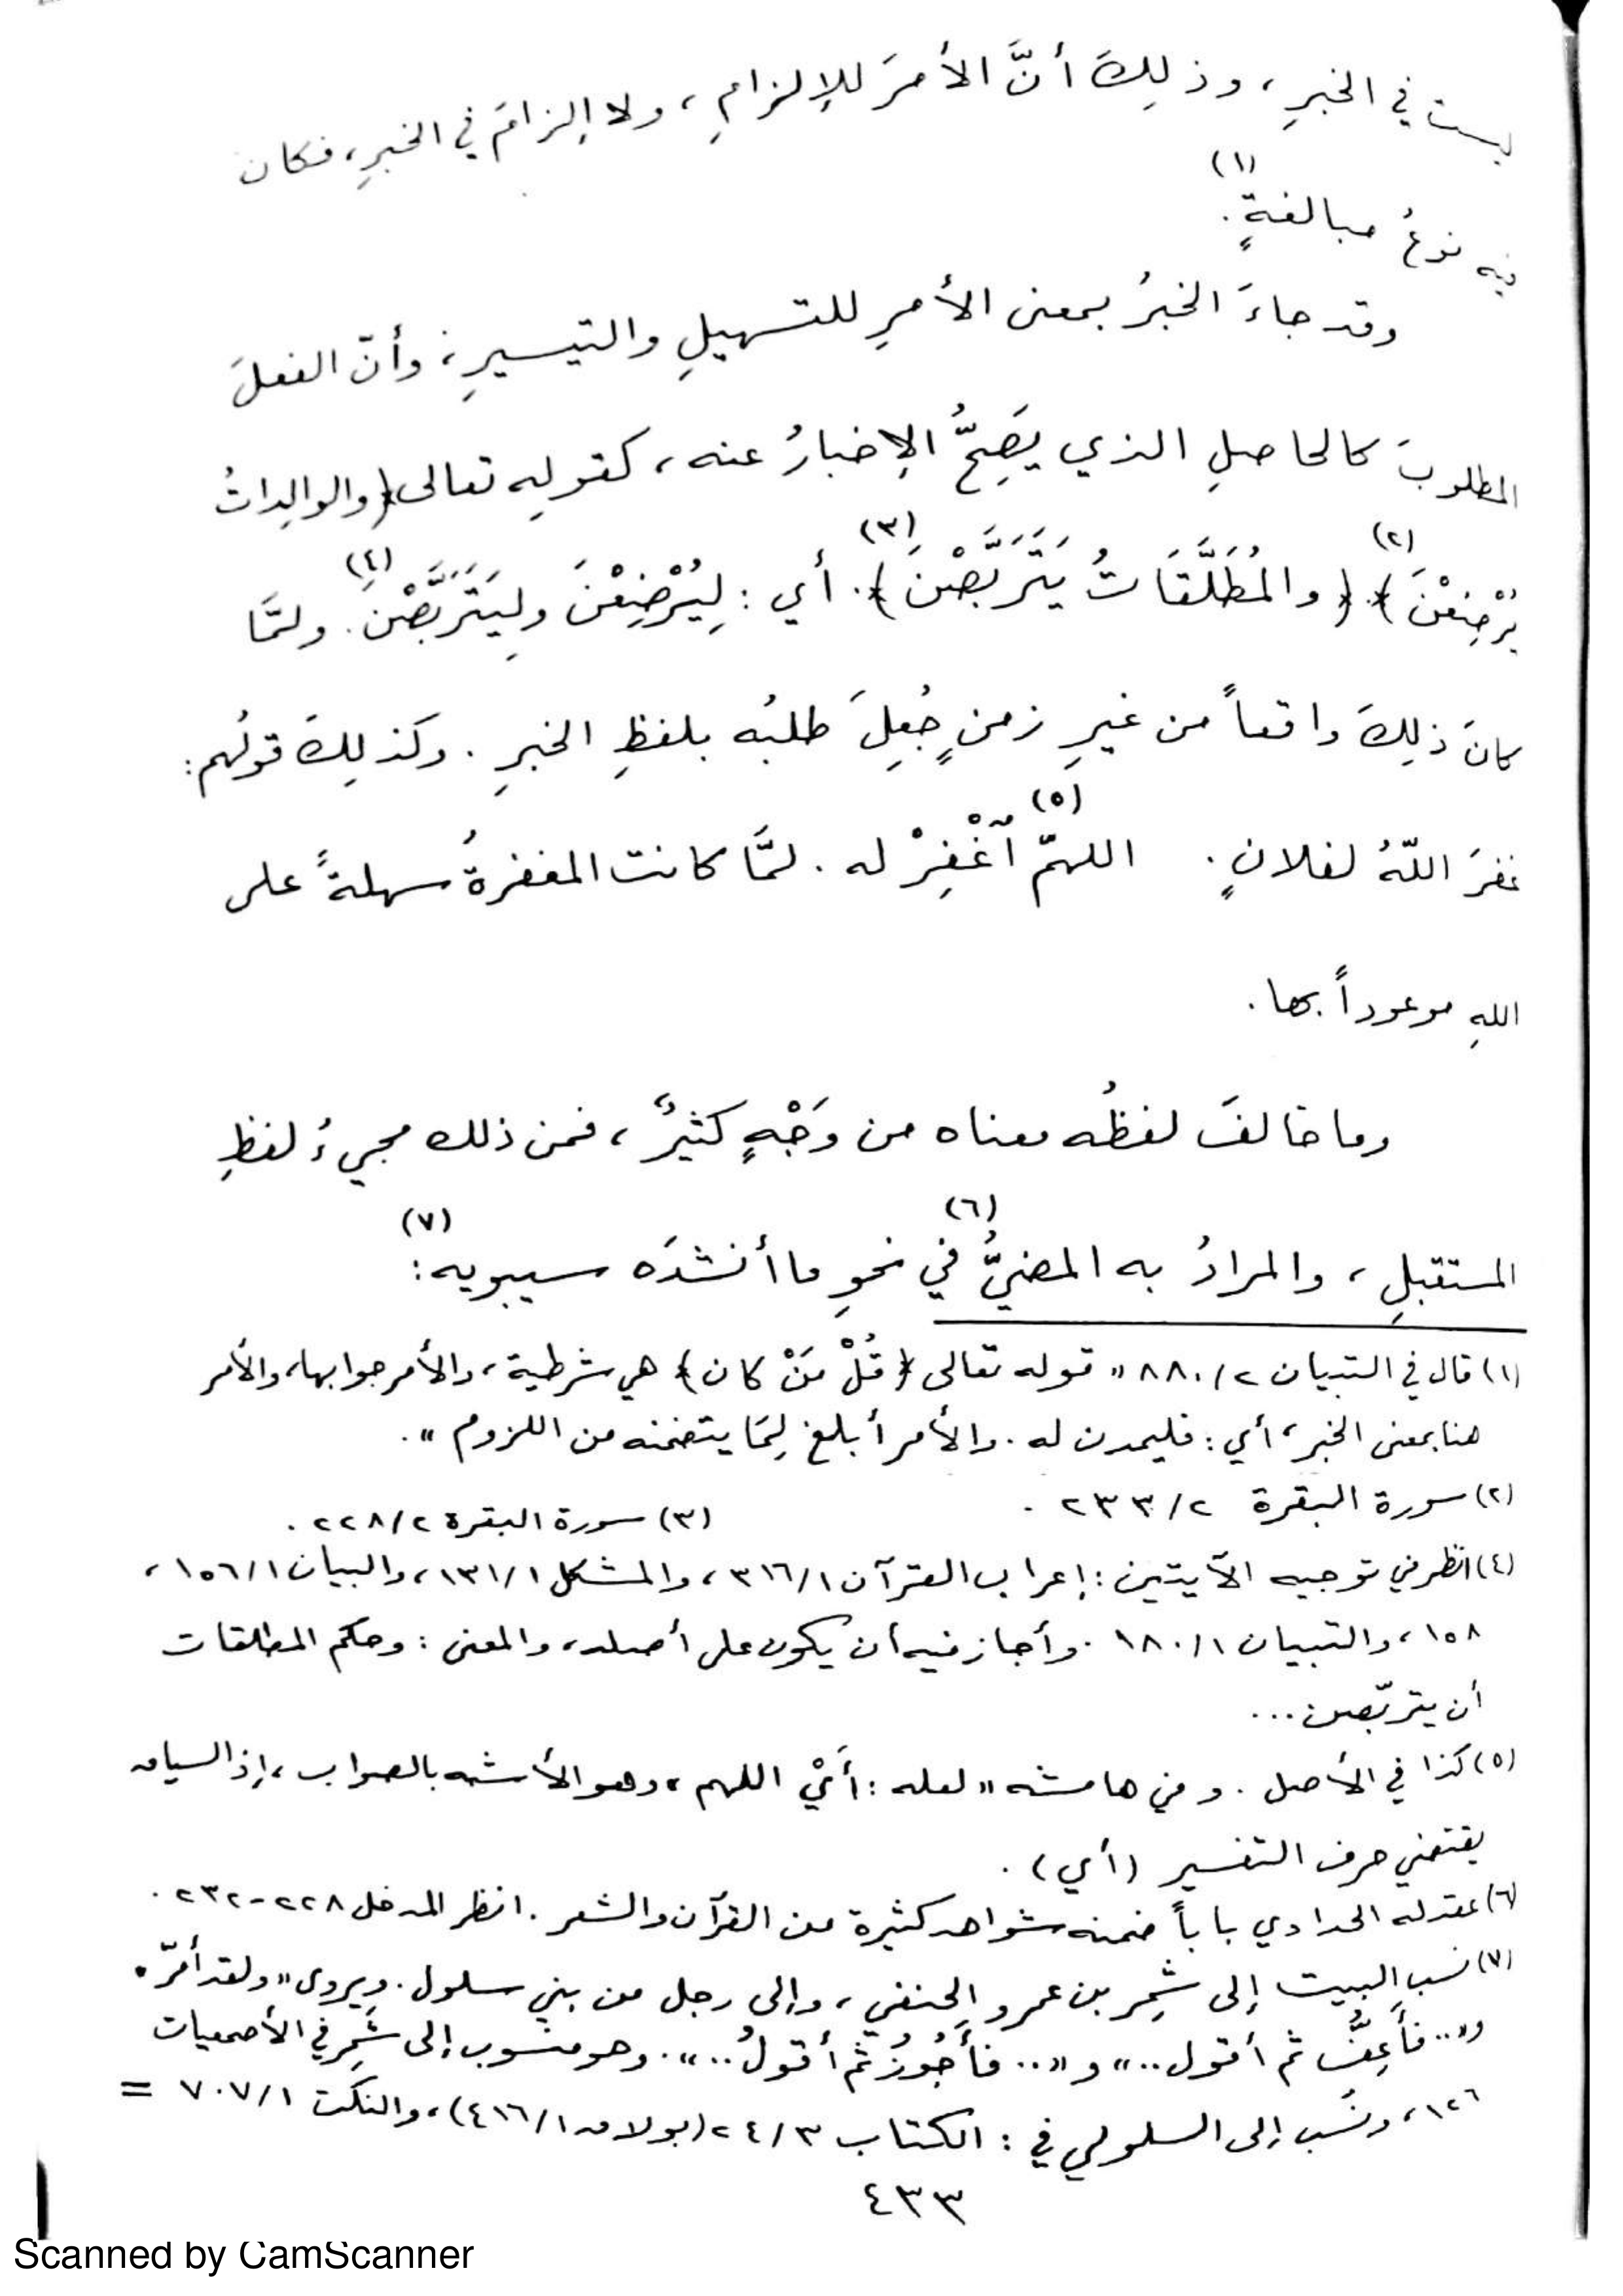 ليست في الخبرِ، وذلِكَ أنَّ الأمرَ للإلزامِ، ولا إلزامَ في الخبرِ، فكان
فيه نوعُ مبالغةٍ(١).
وقد جاءَ الخبرُ بمعنى الأمرِ للتسهيلِ والتيسيرِ، وأنّ الفعلَ
المطلوبَ كالحاصلِ الذي يَصِحُّ الإخبارُ عنه، كقولِه تعالى ﴿والوالِداتُ
يُرْضِعْنَ﴾(٢) ﴿والمُطَلَّقَاتُ يَتَرَبَّصْنَ﴾(٣). أي: لِيُرْضِعْنَ ولِيَتَرَبَّصْنَ(٤). ولمَّا
كانَ ذلِكَ واقعاً من غيرِ زمنٍ جُعِلَ طلبُه بلفظِ الخبرِ. وكذلِكَ قولُهم:
غفرَ اللّهُ لفلانٍ. اللهمّ(٥) ٱغْفِرْ له. لمَّا كانت المغفرةُ سهلةً على
اللهِ موعوداً بها.
وما خالفَ لفظُه معناه من وَجْهٍ كثيرٌ، فمن ذلك مجيءُ لفظِ
المستقبلِ، والمرادُ به المضيُّ(٦) في نحوِ ما أنشدَه سيبويه(٧):
(١) قال في التبيان ٨٨٠/٢ "قوله تعالى ﴿قُلْ مَنْ كان﴾ هي شرطية، والأمر جوابها، والأمر
هنا بمعنى الخبر، أي: فليمدن له. والأمر أبلغ لِمَا يتضمنه من اللزوم".
(٢) سورة البقرة ٢٣٣/٢ .
(٣) سورة البقرة ٢٢٨/٢ .
(٤) انظر في توجيه الآيتين: إعراب القرآن ٣١٦/١، والمشكل ١٣١/١، والبيان ١٥٦/١،
١٥٨، والتبيان ١٨٠/١. وأجاز فيه أن يكون على أصله، والمعنى: وحكم المطلقات
أن يتربّصن...
(٥) كذا في الأصل. وفي هامشه "لعله: أَيْ اللهم، وهو الأشبه بالصواب، إذ السياق
يقتضي حرف التفسير (أي).
(٦) عقد له الحدادي باباً ضمنه شواهد كثيرة من القرآن والشعر. انظر المدخل ٢٢٨-٢٣٢.
(٧) نسب البيت إلى شَمِر بن عمرو الحنفي، وإلى رجل من بني سلول. ويروى "ولقد أمرّ"
و"..فأَعِفُّ ثم أقول.." و"..فأَجُوزُ ثم أقولُ..". وهو منسوب إلى شَمِر في الأصمعيات
١٢٦، ونسب إلى السلولي في: الكتاب ٢٤/٣ (بولاق ٤١٦/١)، والنكت ٧٠٧/١ =
٤٣٣
Scanned by CamScanner